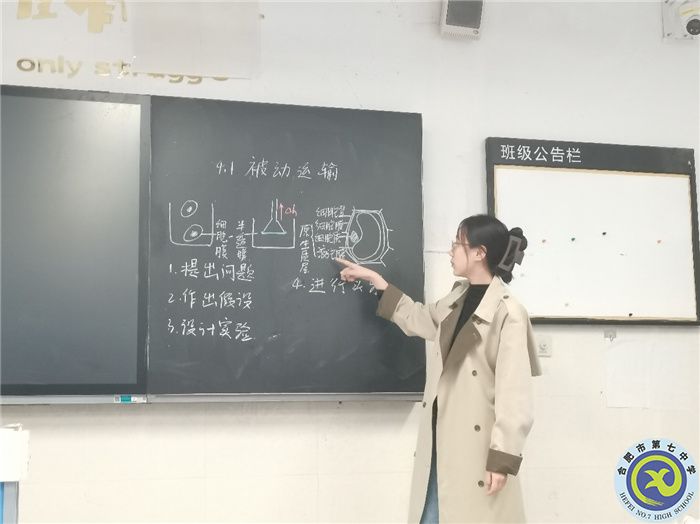 only struggle
4.1 被动运输
细胞膜
半透膜
Δh
原生质层
细胞壁
细胞膜
细胞质
液泡膜
1.提出问题
2.作出假设
3.设计实验
4.进行实
班级公告栏
合肥市第七中学
HEFEI NO.7 HIGH SCHOOL